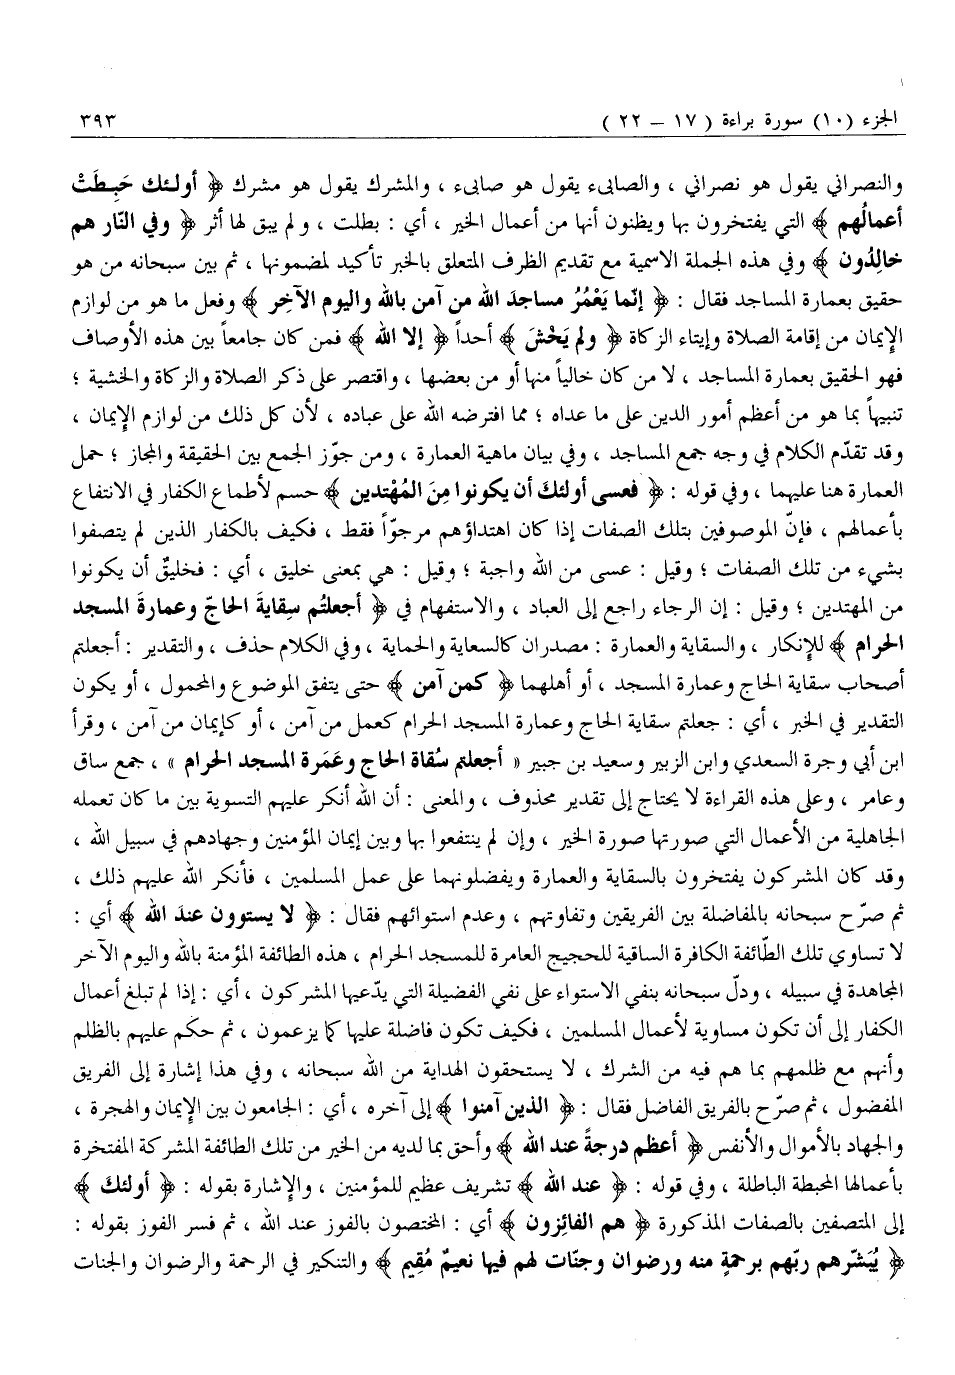 الجزء (١٠) سورة براءة ( ١٧ – ٢٢ ) ٣٩٣
والنصراني يقول هو نصراني ، والصابىء يقول هو صابىء ، والمشرك يقول هو مشرك ﴿ أولئك حَبِطَتْ
أعمالُهم ﴾ التي يفتخرون بها ويظنون أنها من أعمال الخير ، أي : بطلت ، ولم يبق لها أثر ﴿ وفي النّار هم
خالِدُون ﴾ وفي هذه الجملة الاسمية مع تقديم الظرف المتعلق بالخبر تأكيد لمضمونها ، ثم بين سبحانه من هو
حقيق بعمارة المساجد فقال : ﴿ إنّما يَعْمُرُ مساجدَ الله من آمن بالله واليوم الآخِر ﴾ وفعل ما هو من لوازم
الإيمان من إقامة الصلاة وإيتاء الزكاة ﴿ ولم يَخْشَ ﴾ أحداً ﴿ إلا الله ﴾ فمن كان جامعاً بين هذه الأوصاف
فهو الحقيق بعمارة المساجد ، لا من كان خالياً منها أو من بعضها ، واقتصر على ذكر الصلاة والزكاة والخشية ؛
تنبيهاً بما هو من أعظم أمور الدين على ما عداه ؛ مما افترضه الله على عباده ، لأن كل ذلك من لوازم الإيمان ،
وقد تقدّم الكلام في وجه جمع المساجد ، وفي بيان ماهية العمارة ، ومن جوّز الجمع بين الحقيقة والمجاز ؛ حمل
العمارة هنا عليهما ، وفي قوله : ﴿ فعسى أولئكَ أن يكونوا مِنَ المُهْتدين ﴾ حسم لأطماع الكفار في الانتفاع
بأعمالهم ، فإنّ الموصوفين بتلك الصفات إذا كان اهتداؤهم مرجوّاً فقط ، فكيف بالكفار الذين لم يتصفوا
بشيء من تلك الصفات ؛ وقيل : عسى من الله واجبة ؛ وقيل : هي بمعنى خليق ، أي : فخليقٌ أن يكونوا
من المهتدين ؛ وقيل : إن الرجاء راجع إلى العباد ، والاستفهام في ﴿ أجعلتُم سِقايةَ الحاجّ وعمارةَ المسجد
الحرام ﴾ للإنكار ، والسقاية والعمارة : مصدران كالسعاية والحماية ، وفي الكلام حذف ، والتقدير : أجعلتم
أصحاب سقاية الحاج وعمارة المسجد ، أو أهلهما ﴿ كمن آمن ﴾ حتى يتفق الموضوع والمحمول ، أو يكون
التقدير في الخبر ، أي : جعلتم سقاية الحاج وعمارة المسجد الحرام كعمل من آمن ، أو كإيمان من آمن ، وقرأ
ابن أبي وجرة السعدي وابن الزبير وسعيد بن جبير « أجعلتم سُقاة الحاج وعَمَرة المسجد الحرام » ، جمع ساق
وعامر ، وعلى هذه القراءة لا يحتاج إلى تقدير محذوف ، والمعنى : أن الله أنكر عليهم التسوية بين ما كان تعمله
الجاهلية من الأعمال التي صورتها صورة الخير ، وإن لم ينتفعوا بها وبين إيمان المؤمنين وجهادهم في سبيل الله ،
وقد كان المشركون يفتخرون بالسقاية والعمارة ويفضلونهما على عمل المسلمين ، فأنكر الله عليهم ذلك ،
ثم صرّح سبحانه بالمفاضلة بين الفريقين وتفاوتهم ، وعدم استوائهم فقال : ﴿ لا يستوون عندَ الله ﴾ أي :
لا تساوي تلك الطّائفة الكافرة الساقية للحجيج العامرة للمسجد الحرام ، هذه الطائفة المؤمنة بالله واليوم الآخر
المجاهدة في سبيله ، ودلّ سبحانه بنفي الاستواء على نفي الفضيلة التي يدّعيها المشركون ، أي : إذا لم تبلغ أعمال
الكفار إلى أن تكون مساوية لأعمال المسلمين ، فكيف تكون فاضلة عليها كما يزعمون ، ثم حكَم عليهم بالظلم
وأنهم مع ظلمهم بما هم فيه من الشرك ، لا يستحقون الهداية من الله سبحانه ، وفي هذا إشارة إلى الفريق
المفضول ، ثم صرّح بالفريق الفاضل فقال : ﴿ الذين آمنوا ﴾ إلى آخره ، أي : الجامعون بين الإيمان والهجرة ،
والجهاد بالأموال والأنفس ﴿ أعظم درجةً عند الله ﴾ وأحق بما لديه من الخير من تلك الطائفة المشركة المفتخرة
بأعمالها المحبطة الباطلة ، وفي قوله : ﴿ عند الله ﴾ تشريف عظيم للمؤمنين ، والإشارة بقوله : ﴿ أولئكَ ﴾
إلى المتصفين بالصفات المذكورة ﴿ هم الفائِزون ﴾ أي : المختصون بالفوز عند الله ، ثم فسر الفوز بقوله :
﴿ يُبَشّرهم ربّهم برحمةٍ منه ورضوان وجنّات لهم فيها نعيمٌ مُقِيم ﴾ والتنكير في الرحمة والرضوان والجنات